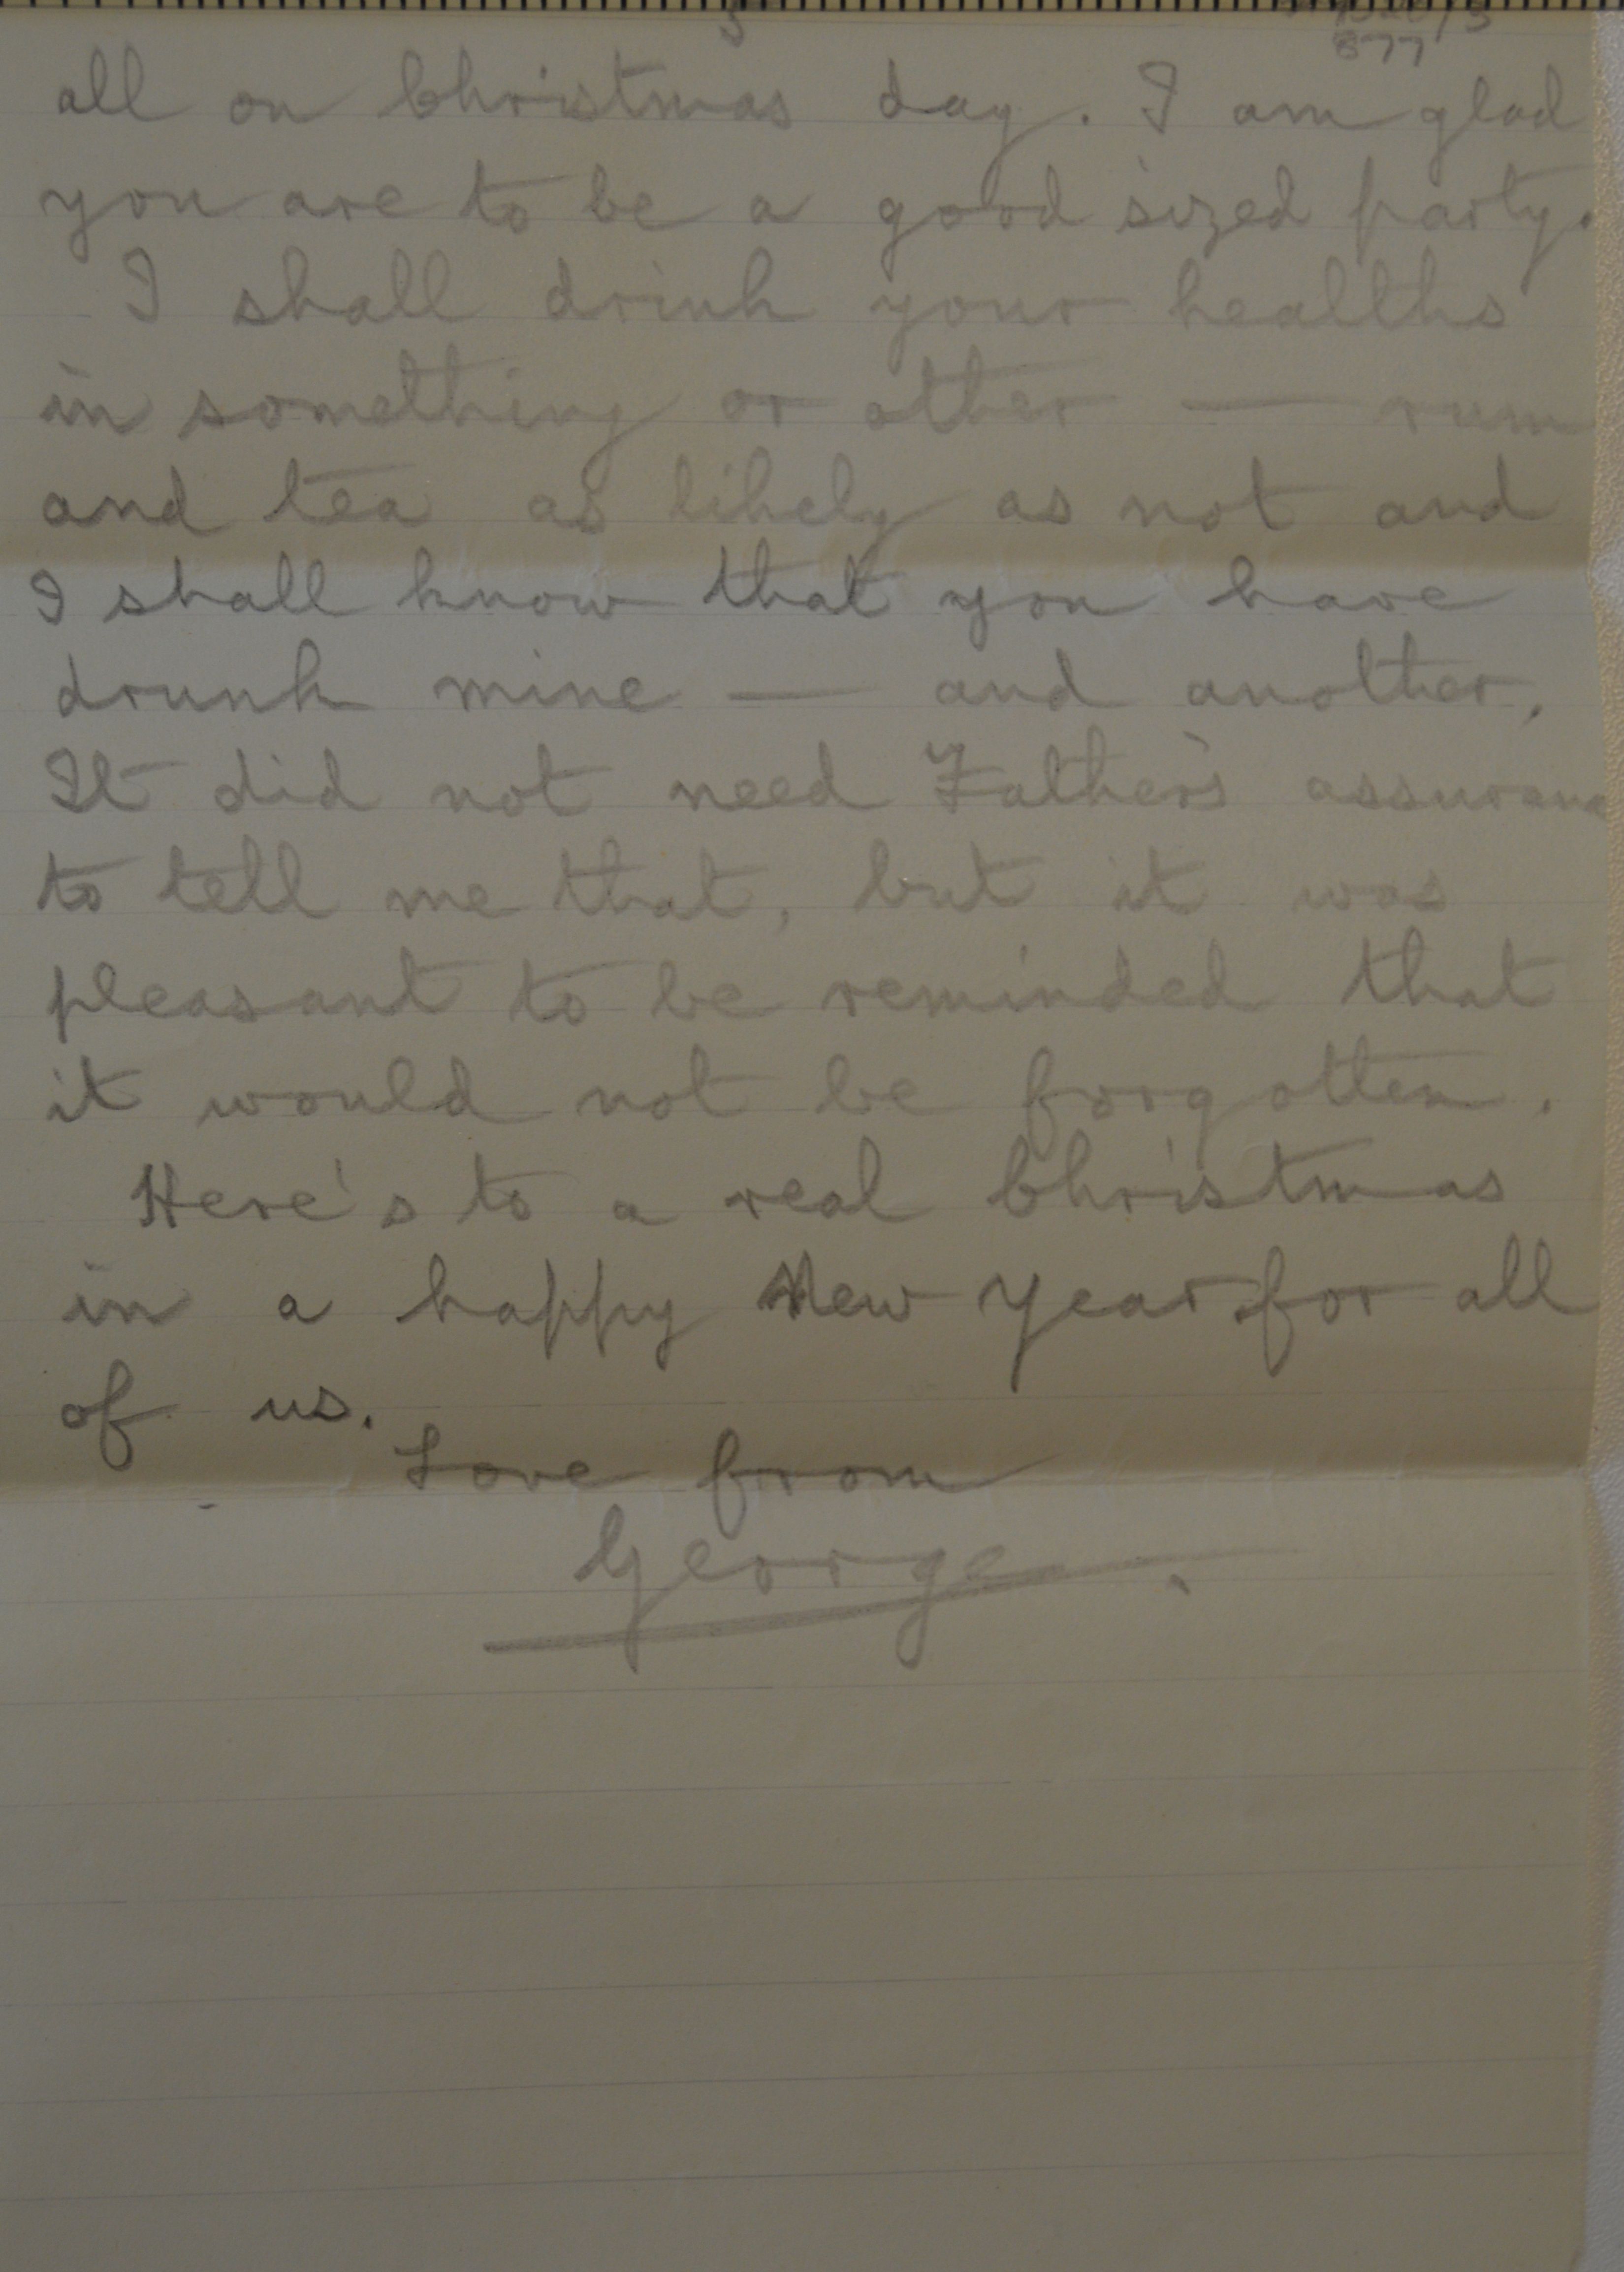 5
877
all on Christmas day. I am glad
you are to be a good sized party.
I shall drink your healths
in something or other — rum
and tea as likely as not and
I shall know that you have
drunk mine — and another.
It did not need Father's assurance
to tell me that, but it was
pleasant to be reminded that
it would not be forgotten.
Here's to a real Christmas
in a happy New Year for all
of us.
Love from
George.